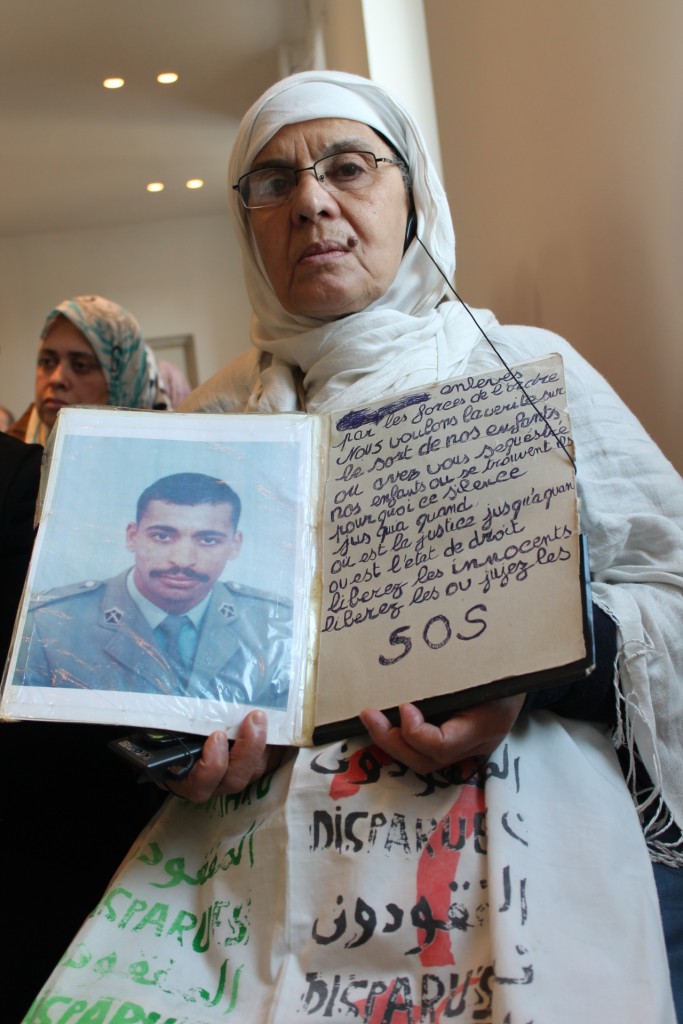 enlevés
par les forces de l'ordre
Nous voulons la verité sur
le sort de nos enfants
ou avez vous sequéstré
nos enfants ou se trouvent ils
pourquoi ce silence
jus qua quand
ou est la justice jusqu'a quand
ou est l'etat de droit
liberez les innocents
liberez les ou jujez les
SOS
المفقودون
DISPARUS
المفقودون
DISPARUS
المفقودون
DISPARUS
المفقودون
DISPARUS